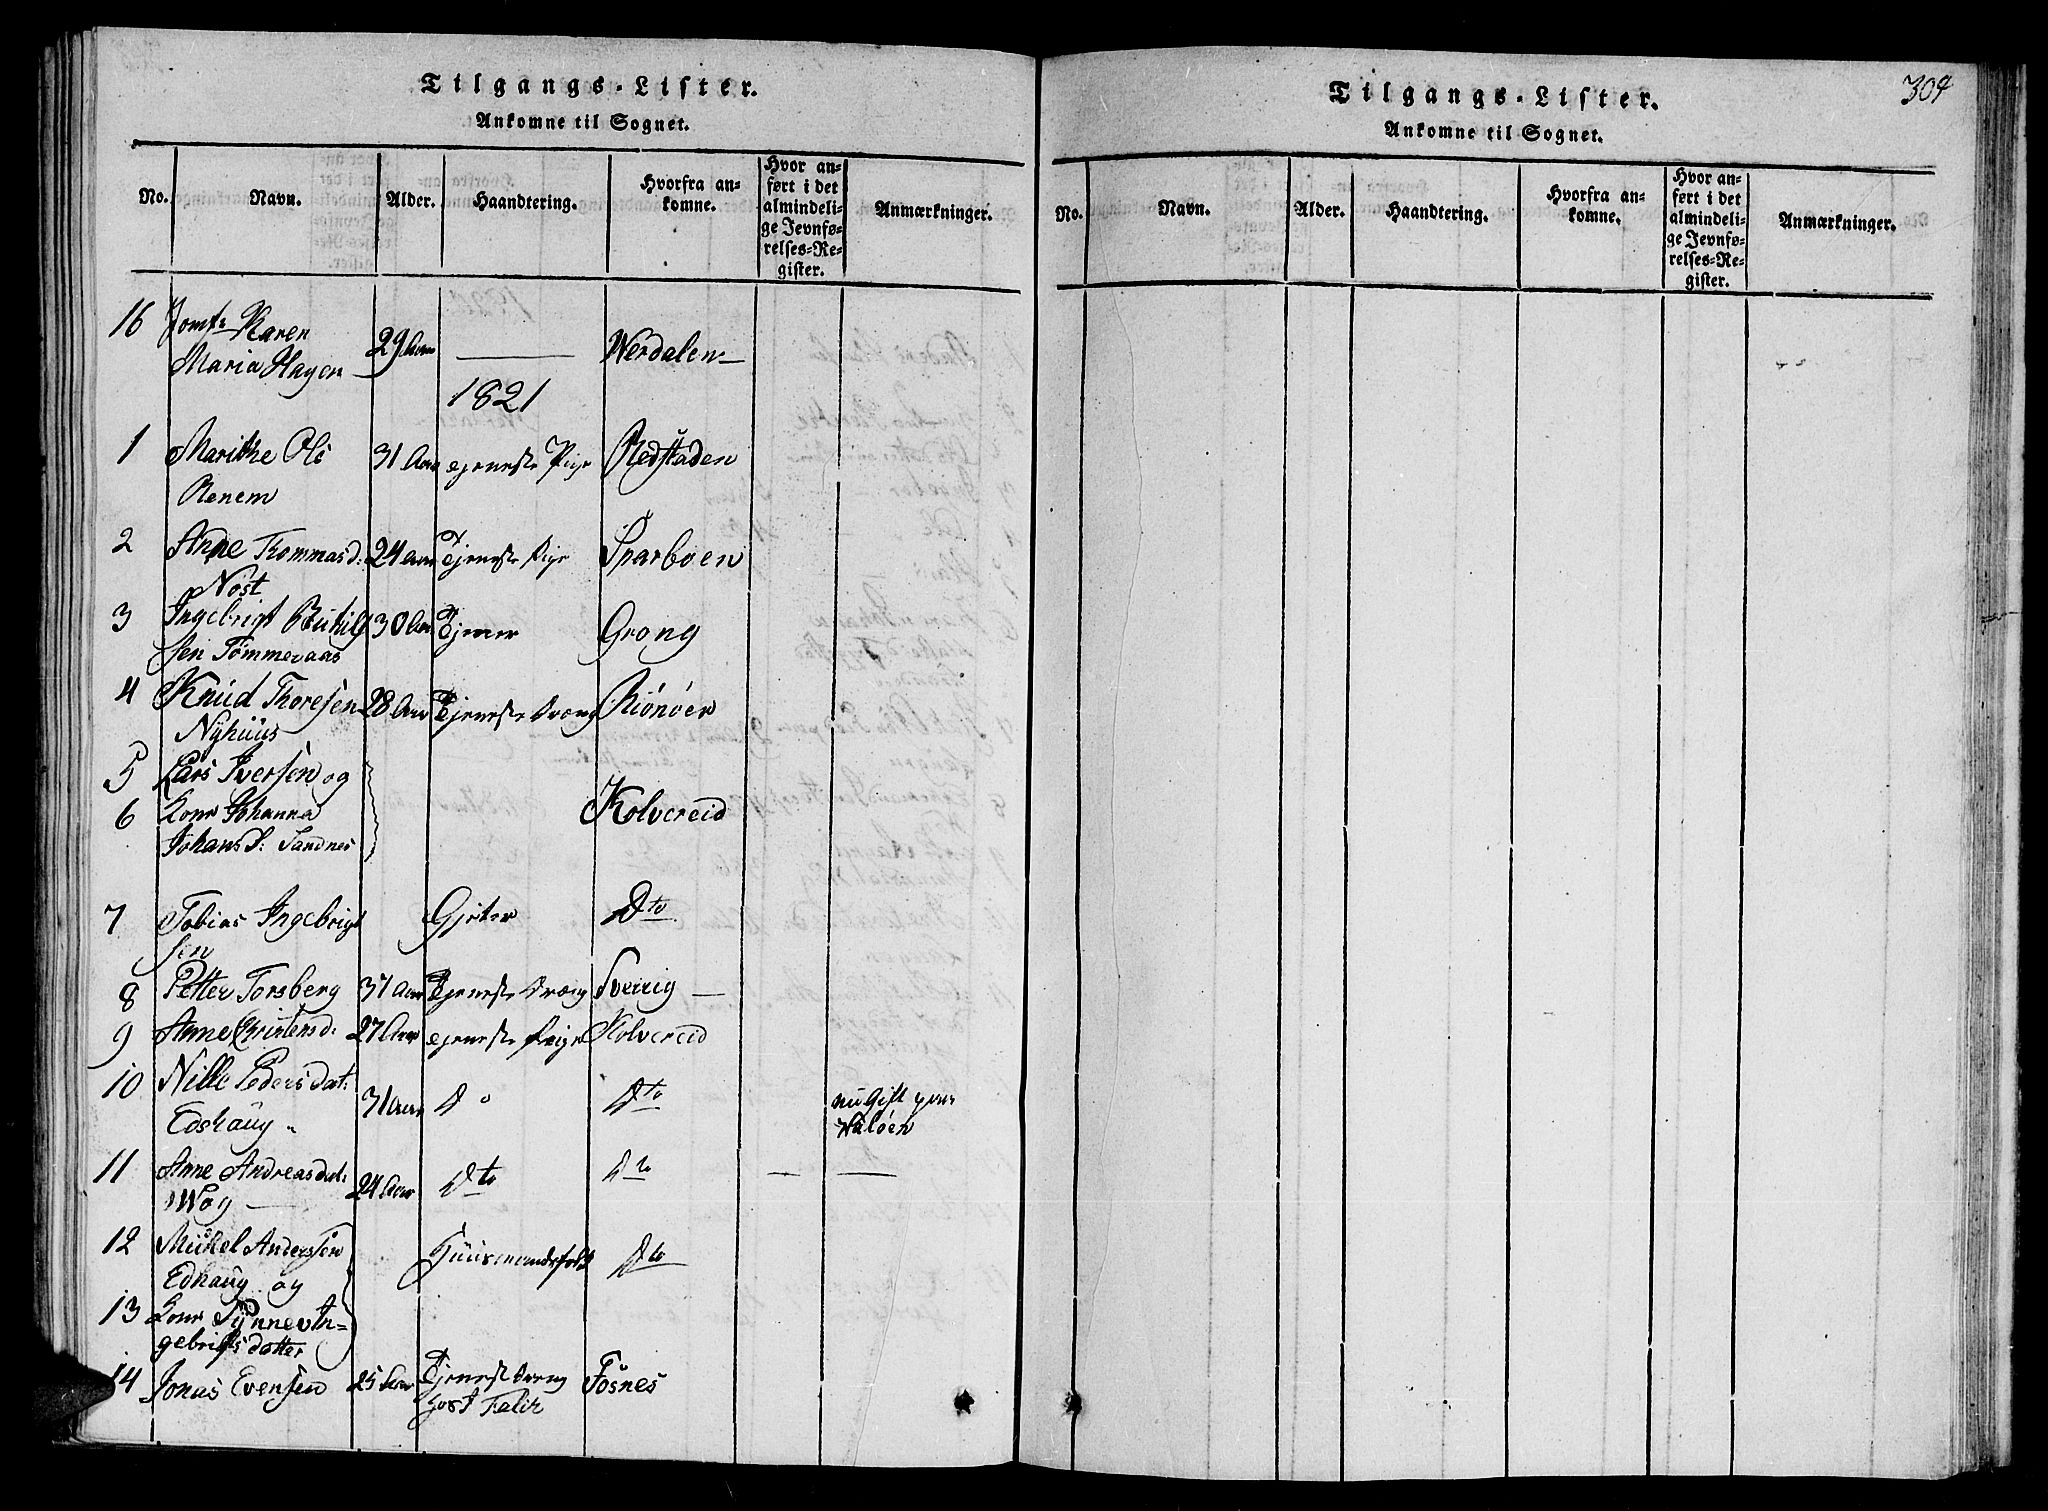 Tilgangs-Lister.
Ankomne til Sognet.
No. Navn. Alder. Haandtering. Hvorfra ankomne. Hvor anført i det almindelige Jevnførelses-Register. Anmærkninger.
16 Jomf: Karen
Maria Hagen 29 Aar — Werdalen
1821
1 Marithe Ols 31 Aar tjeneste Pige Redstaden
Renem
2 Anne Thommasd: 24 Aar Tjeneste Pige Sparboen
Nöst
3 Ingebrigt 30 Aar Tjener Grong
sen Tömmeraas
4 Knud Thoresen 28 Aar Tjeneste Dreng
Nyhuus
5 Lars Iversen og
6 Kone Johanna Kolvereid
Johans D: Sandnes
7 Tobias Ingebrigt Gjeter Dto
sen
8 Petter Torsberg 37 Aar Tjeneste Dreng Sverrig —
9 Anne Christensd: 27 Aar tjeneste Pige Kolvereid
10 Nille Peders dat: 31 Aar Do Dto nu Gift paa
Edshaug Waløen
11 Anne Andreasdat: 24 Aar Dto Dto — —
Wog —
12 Mickel Anderssen Huusmandsfolk Dto
Edhaug og
13 Kone Synnev In=
gebrigtsdatter
14 Jonas Evensen 25 Aar Tjeneste Dreng Fosnes
hos J Falck
304
Tilgangs-Lister.
Ankomne til Sognet.
No. Navn. Alder. Haandtering. Hvorfra ankomne. Hvor anført i det almindelige Jevnførelses-Register. Anmærkninger.